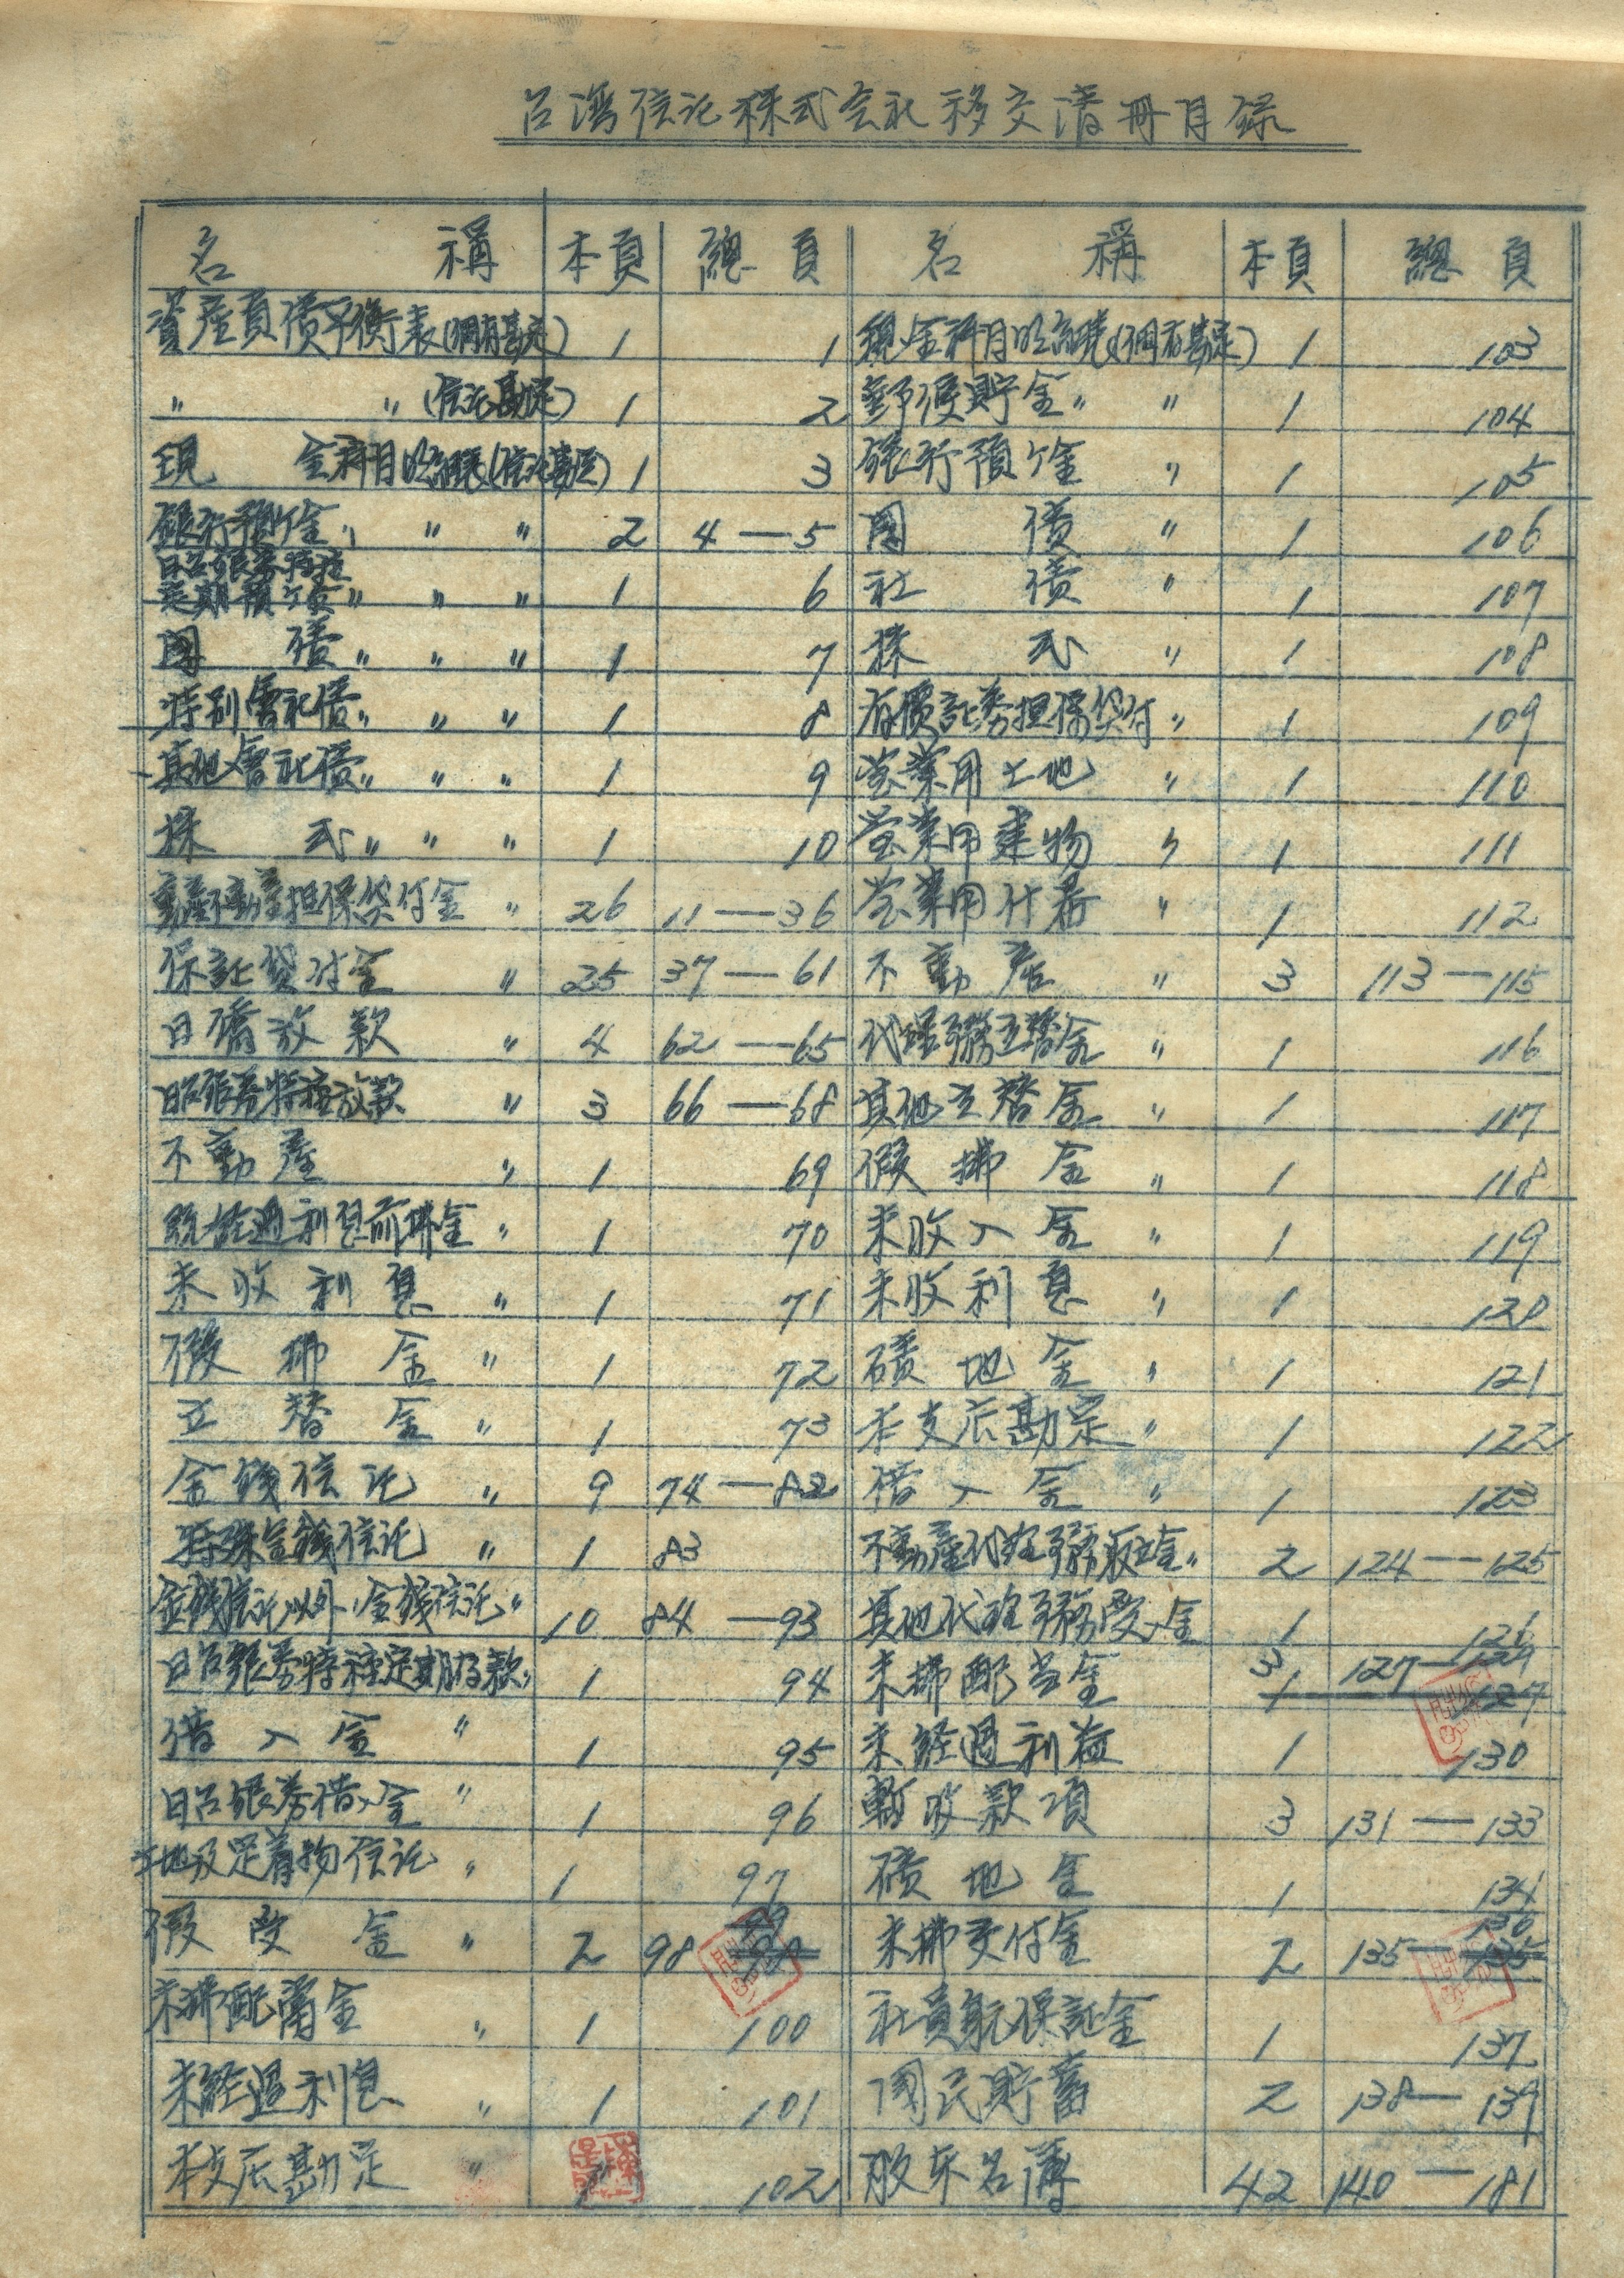 台湾信託株式会社移交清冊目錄
名稱 本頁 總頁 名稱 本頁 總頁
資產負債平衡表(固有勘定) 1 1 現金科目明細表(固有勘定) 1 103
〃 〃(信託勘定) 1 2 郵便貯金〃 〃 1 104
現金科目明細表(信託勘定) 1 3 銀行預ケ金 〃 1 105
銀行預ケ金〃 〃 〃 2 4—5 国債 〃 1 106
日台銀券特種定期預ケ金〃 〃 〃 1 6 社債 〃 1 107
国債〃 〃 〃 1 7 株式 〃 1 108
特別會社債〃 〃 〃 1 8 有價証券担保貸付〃 1 109
其他會社債〃 〃 〃 1 9 営業用土地 〃 1 110
株式〃 〃 〃 1 10 営業用建物 〃 1 111
動產不動產担保貸付金 〃 26 11—36 営業用什器 〃 1 112
保証貸付金 〃 25 37—61 不動産 〃 3 113—115
日僑放款 〃 4 62—65 代理事務立替金 〃 1 116
日台銀券特種放款 〃 3 66—68 其他立替金 〃 1 117
不動産 〃 1 69 假拂金 〃 1 118
経過利息前拂金 〃 1 70 未收入金 〃 1 119
未收利息 〃 1 71 未收利息 〃 1 120
假拂金 〃 1 72 積地金 〃 1 121
立替金 〃 1 73 本支店勘定 〃 1 122
金錢信託 〃 9 74—82 借入金 〃 1 123
特殊金錢信託 〃 1 83 不動產代理事務取立金〃 2 124—125
金錢信託以外ノ金錢信託〃 10 84—93 其他代理事務受入金 1 126
日台銀券特種定期存款〃 1 94 未拂配当金 3 1 127—129 127
借入金 〃 1 95 未経過利益 1 130
日台銀券借入金 〃 1 96 暫收款項 3 131—133
土地及定着物信託 〃 1 97 積地金 1 134
假受金 〃 2 98—99 98 未拂交付金 2 135—136 135
未拂配當金 〃 1 100 社員身元保証金 1 137
未経過利息 〃 1 101 国民貯蓄 2 138—139
本支店勘定 〃 1 102 股东名簿 42 140—181